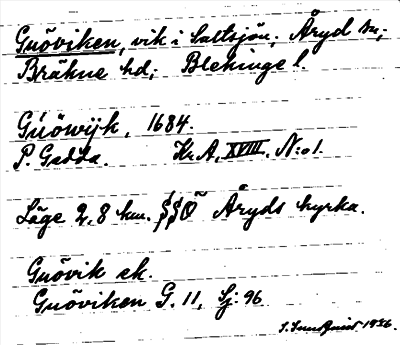 Gnöviken, vik i Saltsjön; Åryd sn;
Bräkne hd; Blekinge l.
Gnöwijk, 1684.
P. Gedda. Kr. A. XVIII. N:o 1.
Läge 2,8 km. SSÖ Åryds kyrka.
Gnövik ek.
Gnöviken G. 11, Sj: 96
1936.